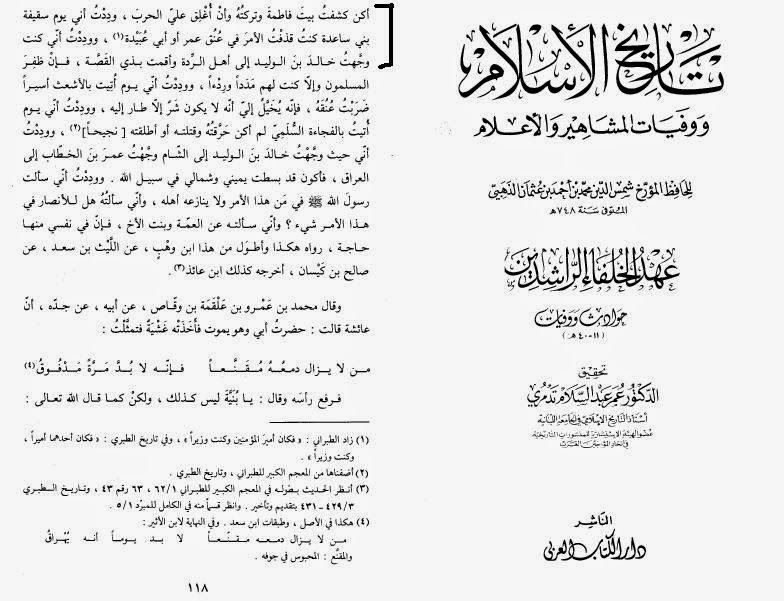 تاريخ الإسلام
ووفيات المشاهير والأعلام
للحافظ المؤرخ شمس الدين محمد بن أحمد بن عثمان الذهبي
المتوفى سنة ٧٤٨ هـ
عهد الخلفاء الراشدين
حوادث ووفيات
(١١-٤٠ هـ)
تحقيق
الدكتور عمر عبد السلام تدمري
أستاذ التاريخ الإسلامي في الجامعة اللبنانية
الناشر
دار الكتاب العربي
أكن كشفتُ بيتَ فاطمةَ وتركتُهُ وأنْ أُغْلِق عليّ الحربَ ، ودِدْتُ أني يوم سقيفة
بني ساعدة كنتُ قذفْتُ الأمرَ في عُنق عمر أو أبي عُبَيْدة(١) ، ووددْتُ أني كنت
وجَّهتُ خالدَ بنَ الوليد إلى أهل الرِّدة وأقمت بذي القَصَّة ، فإنْ ظفِرَ
المسلمون وإلّا كنت لهم مَدَداً ورِدْءاً ، ووددْتُ أني يوم أُتِيتُ بالأشعث أسيراً
ضَرَبْتُ عُنُقَهُ ، فإنّه يُخَيَّلُ إليّ أنّه لا يكون شَرٌّ إلّا طار إليه ، ووددْتُ أني يوم
أُتيتُ بالفجاءة السُّلَمِيّ لم أكن حَرَّقتُهُ وقتلته أو أطلقته [ نجيحاً ](٢) ، ووددْتُ
أني حيث وجَّهْتُ خالدَ بنَ الوليد إلى الشّام وجَّهْتُ عمرَ بنَ الخطّاب إلى
العراق ، فأكون قد بسطت يميني وشمالي في سبيل الله . ووددْتُ أني سألت
رسولَ الله ﷺ في مَن هذا الأمر ولا ينازعه أهله ، وأنّي سألتُهُ هل للأنصار في
هذا الأمر شيء ؟ وأني سألته عن العمّة وبنت الأخ ، فإنّ في نفسي منها
حاجة ، رواه هكذا وأطْوَل من هذا ابن وهْبٍ ، عن اللَّيْث بن سعد ، عن
صالح بن كَيْسان ، أخرجه كذلك ابن عائذ(٣).
وقال محمد بن عَمْرو بن عَلْقَمَة بن وقّاص ، عن أبيه ، عن جدّه ، أنّ
عائشة قالت : حضرتُ أبي وهو يموت فأَخَذَتْه غَشْيَةٌ فتمثَّلْتُ :
مـن لا يـزال دمعـهُ مُـقَـنَّعـاً فـإنّـه لا بُـدَّ مَـرَّةً مَـدْفُـوقُ(٤)
فـرفع رأسَـه وقال : يـا بُنَيَّةَ ليس كـذلك ، ولكنْ كمـا قـال الله تعـالى :
(١) زاد الطبراني : « فكان أميرَ المؤمنين وكنت وزيراً » ، وفي تاريخ الطبري : « فكان أحدهما أميراً ،
وكنت وزيراً » .
(٢) أضفناها من المعجم الكبير للطبراني ، وتاريخ الطبري .
(٣) أنظر الحديث بطوله في المعجم الكبير للطبراني ٦٢/١ ، ٦٣ رقم ٤٣ ، وتاريخ الـطبـري
٤٢٩/٣ - ٤٣١ بتقديم وتأخير . وانظر قسماً منه في الكامل للمبرّد ٥/١ .
(٤) هكذا في الأصل ، وطبقات ابن سعد . وفي النهاية لابن الأثير :
مـن لا يـزال دمعـه مقـنّعـاً لا بـد يـومـاً أنـه يُهْـراقُ
والمقنَّع : المحبوس في جوفه .
١١٨